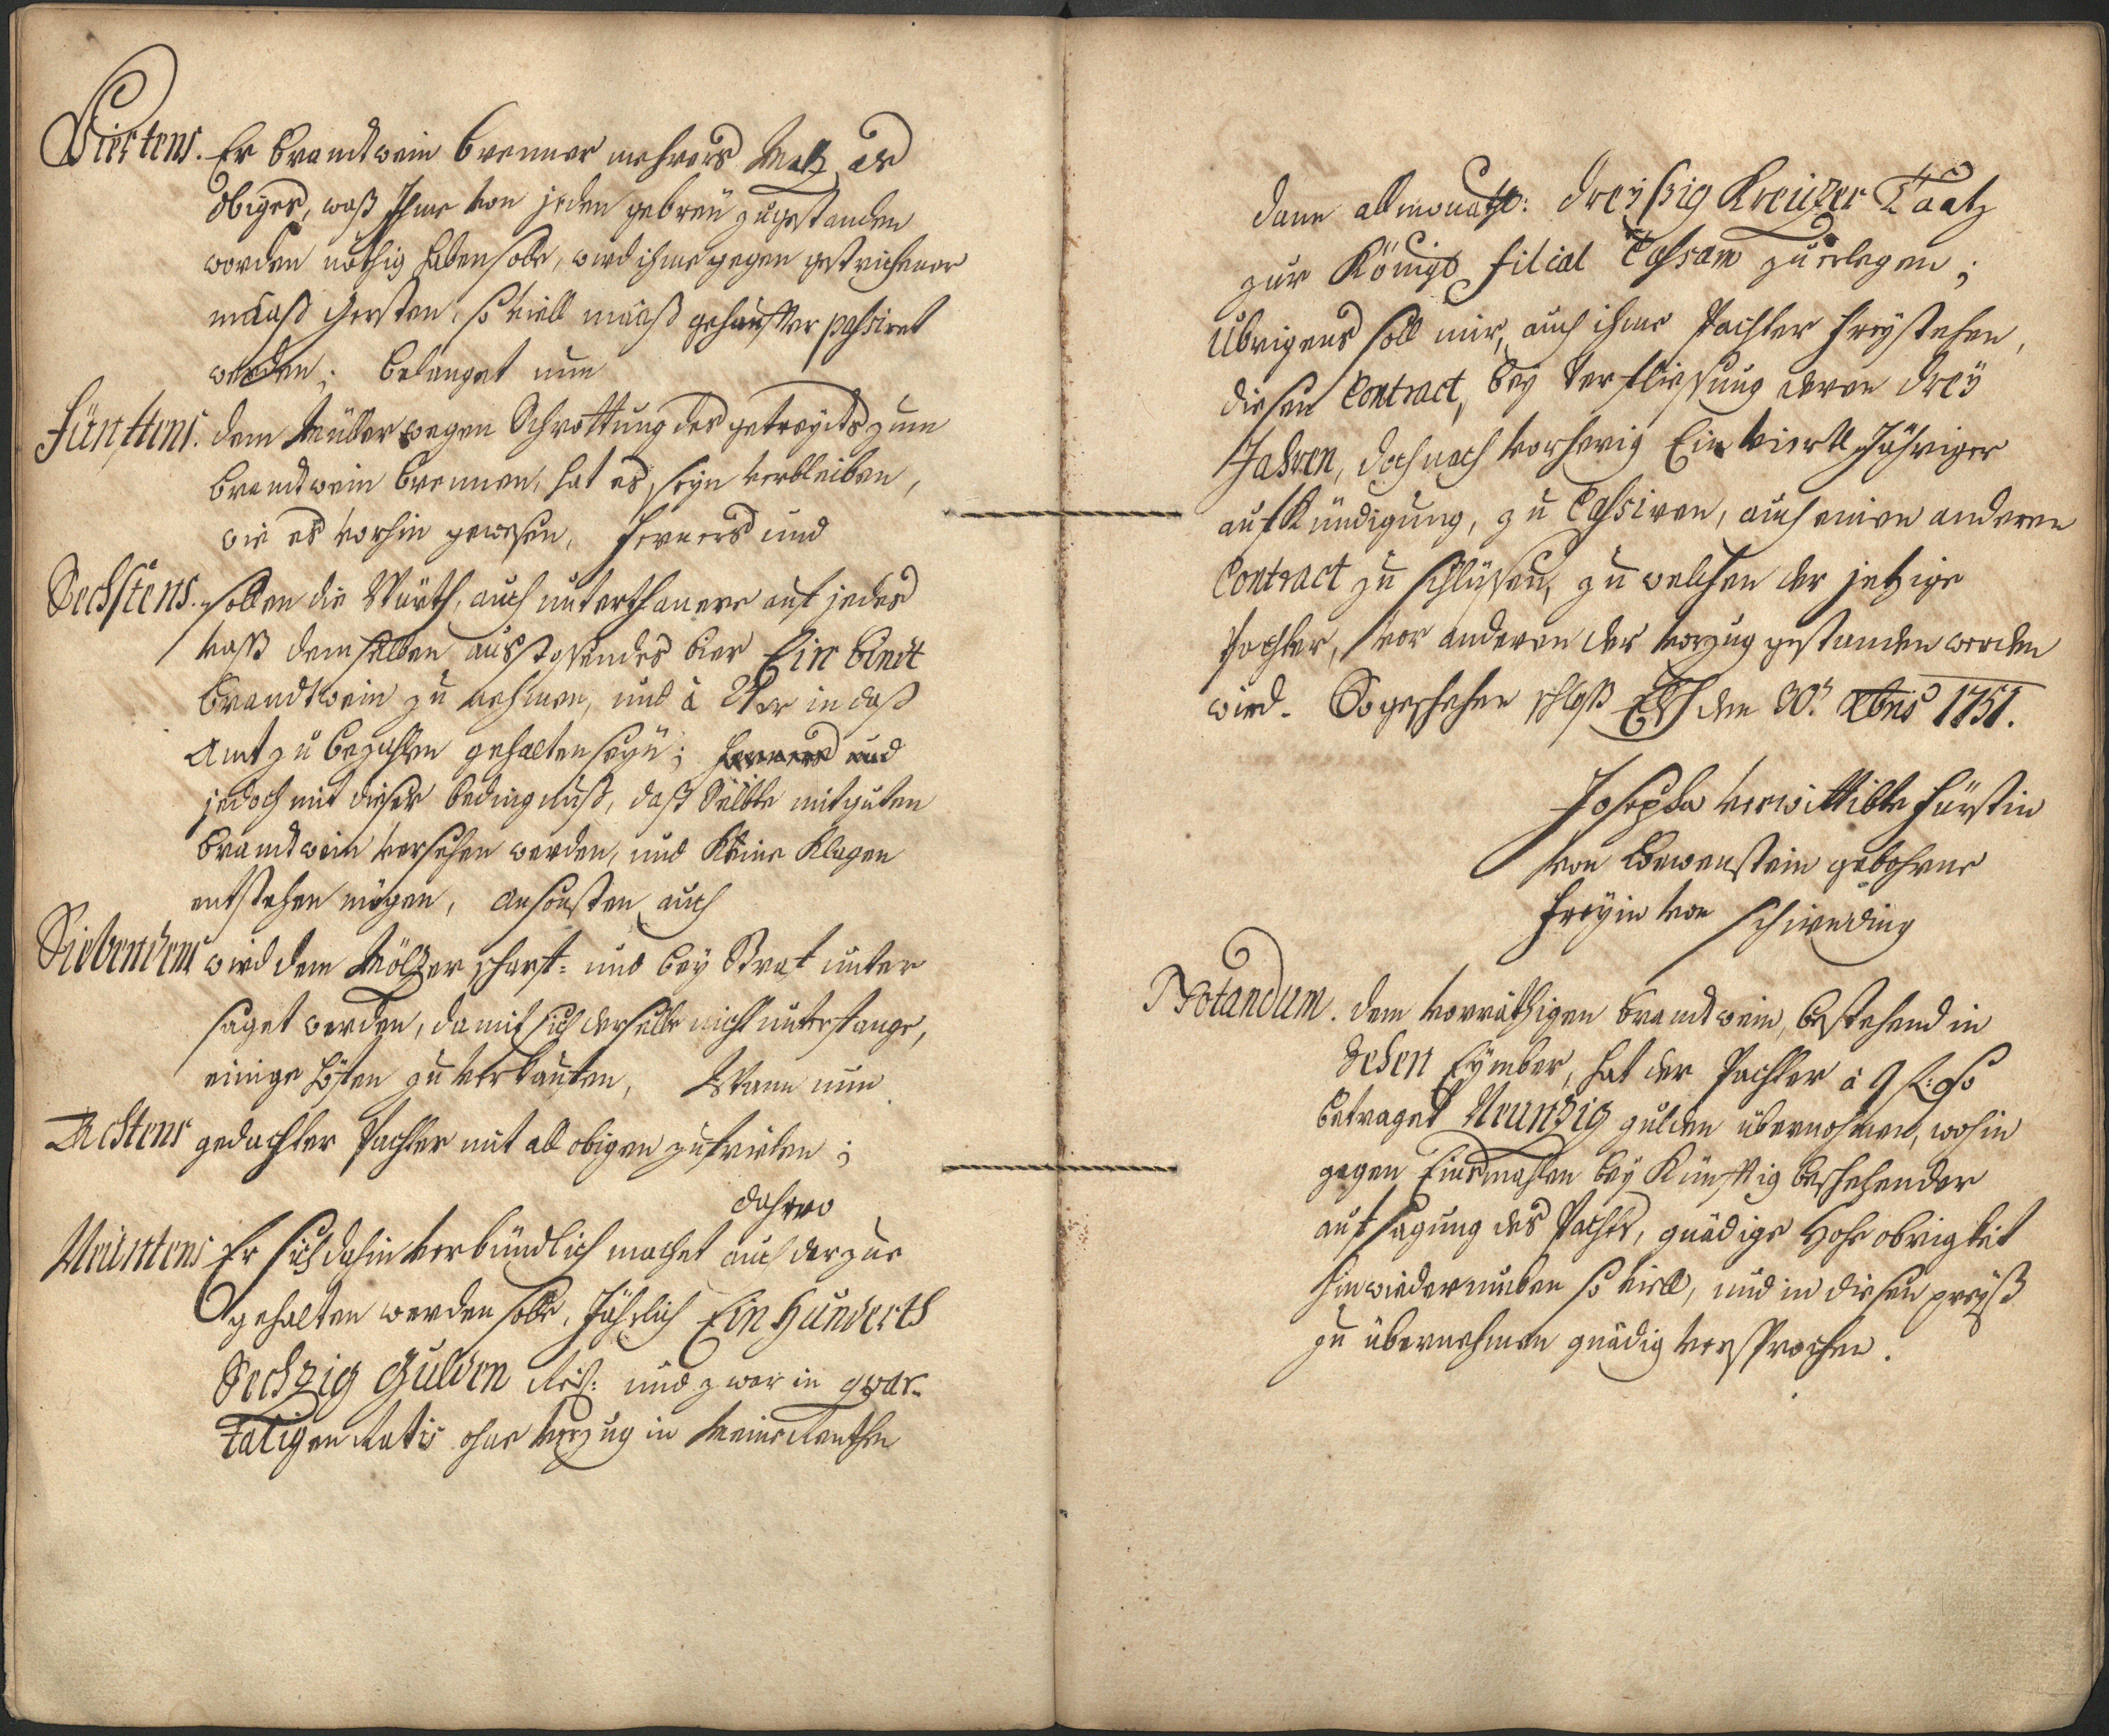 Viertens. Er brandtwein brenner mehrers Maltz, als
obiges, waß Ihme von jeden gebreü zugestanden
worden nöthig haben solle, wird ihme gegen gestrichener
maaß gersten, so viell maaß gehauffter passiret
werden; belanget nun
Fünfftens. dem Müller wegen Schrottung des getreydts zum
brandtwein brennen, hat es, seyn verbleiben,
wie es vorhin gewesen, ferners und
Sechstens. sollen die Würth, auch unterthanere auf jedes
vaß demselben ausstossendes bier Ein
brandtwein zu nehmen, und à 24 xr in daß
Amt zu bezahlen gehalten seyn; ferners und
jedoch mit dieser bedingnuß, daß Selbte mit guten
brandtwein versehen werden, und Keine Klagen
entstehen mögen, ansonsten auch
Siebendens wird dem Mölzer scharf- und bey Straf unter
saget werden, damit sich derselbe nicht unterfange,
einige höffen zu verkauffen, Wann nun
Achtens gedachter Pachter mit all obigen zufrieden;
dahero
Neüntens Er sich dahin verbündlich machet auch darzue
gehalten werden solle, Jährlich Ein Hunderth
Sechzig Gulden Reih: und zwar in quar-
taligen Ratis ohne Verzug in Meine Renthen
dann allmonathl: dreyssig Kreüzer Taatz
zur Königl. filial Cassam zu erlegen;
Übrigens soll mir, auch ihme Pachter freystehen,
diesen Contract, bey Verfliessung deren drey
Jahren, doch nach vorherig Ein viertl Jähriger
aufkündigung, zu Cassiren, auch einen anderen
Contract zu schlüssen, zu welchen der jetzige
Pachter, vor anderen der vorzug gestanden werden
wird. So geschehen schloß den 30.t Xbris 1751.
Josepha verwittibte Fürstin
von Löwenstein gebohrne
Freyin von Schirnding
Notandum. dem vorräthigen brandtwein, bestehend in
Zehen Eymber, hat der Pachter à 9 f: So
betraget Neunzig gulden übernohmen, wohin
gegen Einsmahlen bey Künfftig beschehender
aufsagung des Pachts, gnädige Hohe obrigkeit
hinwiederumben so viell, und in diesen preyß
zu übernehmen gnädig versprochen.